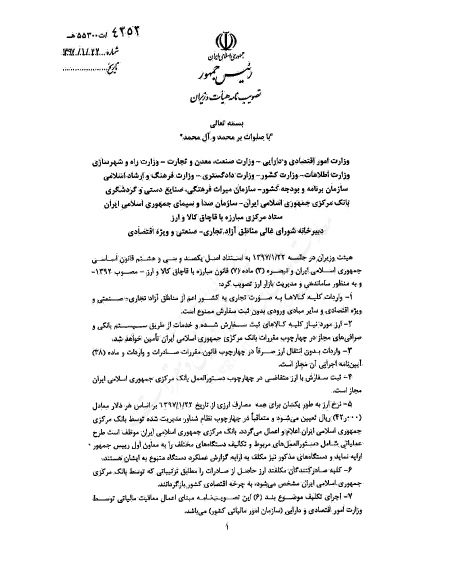 ۴۲۵۲ /ت۵۵۳۰۰هـ
شماره
۱۳۹۷/۱/۲۲
تاریخ
جمهوری اسلامی ایران
رئیس جمهور
تصویب نامه هیأت وزیران
بسمه تعالی
"با صلوات بر محمد و آل محمد"
وزارت امور اقتصادی و دارایی - وزارت صنعت، معدن و تجارت - وزارت راه و شهرسازی
وزارت اطلاعات - وزارت کشور - وزارت دادگستری - وزارت فرهنگ و ارشاد اسلامی
سازمان برنامه و بودجه کشور - سازمان میراث فرهنگی، صنایع دستی و گردشگری
بانک مرکزی جمهوری اسلامی ایران - سازمان صدا و سیمای جمهوری اسلامی ایران
ستاد مرکزی مبارزه با قاچاق کالا و ارز
دبیرخانه شورای عالی مناطق آزاد تجاری - صنعتی و ویژه اقتصادی
هیئت وزیران در جلسه ۱۳۹۷/۱/۲۲ به استناد اصل یکصد و سی و هشتم قانون اساسی
جمهوری اسلامی ایران و تبصره (۳) ماده (۷) قانون مبارزه با قاچاق کالا و ارز - مصوب ۱۳۹۲-
و به منظور ساماندهی و مدیریت بازار ارز تصویب کرد:
۱- واردات کلیه کالاها به صورت تجاری به کشور اعم از مناطق آزاد تجاری - صنعتی و
ویژه اقتصادی و سایر مبادی ورودی بدون ثبت سفارش ممنوع است.
۲- ارز مورد نیاز کلیه کالاهای ثبت سفارش شده و خدمات از طریق سیستم بانکی و
صرافی‌های مجاز در چهارچوب مقررات بانک مرکزی جمهوری اسلامی ایران تأمین خواهد شد.
۳- واردات بدون انتقال ارز صرفاً در چهارچوب قانون مقررات صادرات و واردات و ماده (۳۸)
آیین‌نامه اجرایی آن مجاز است.
۴- ثبت سفارش با ارز متقاضی در چهارچوب دستورالعمل بانک مرکزی جمهوری اسلامی ایران
مجاز است.
۵- نرخ ارز به طور یکسان برای همه مصارف ارزی از تاریخ ۱۳۹۷/۱/۲۲ بر اساس هر دلار معادل
(۴۲٫۰۰۰) ریال تعیین می‌شود و متعاقباً در چهارچوب نظام شناور مدیریت شده توسط بانک مرکزی
جمهوری اسلامی ایران اعلام و اعمال می‌گردد. بانک مرکزی جمهوری اسلامی ایران موظف است طرح
عملیاتی شامل دستورالعمل‌های مربوط و تکالیف دستگاه‌های مختلف را به معاون اول رییس جمهور
ارایه نماید و دستگاه‌های مذکور نیز مکلف به ارایه گزارش عملکرد دستگاه متبوع به ایشان هستند.
۶- کلیه صادرکنندگان مکلفند ارز حاصل از صادرات را مطابق ترتیباتی که توسط بانک مرکزی
جمهوری اسلامی ایران مشخص می‌شود، به چرخه اقتصادی کشور بازگردانند.
۷- اجرای تکلیف موضوع بند (۶) این تصویب‌نامه مبنای اعمال معافیت مالیاتی توسط
وزارت امور اقتصادی و دارایی (سازمان امور مالیاتی کشور) می‌باشد.
۱